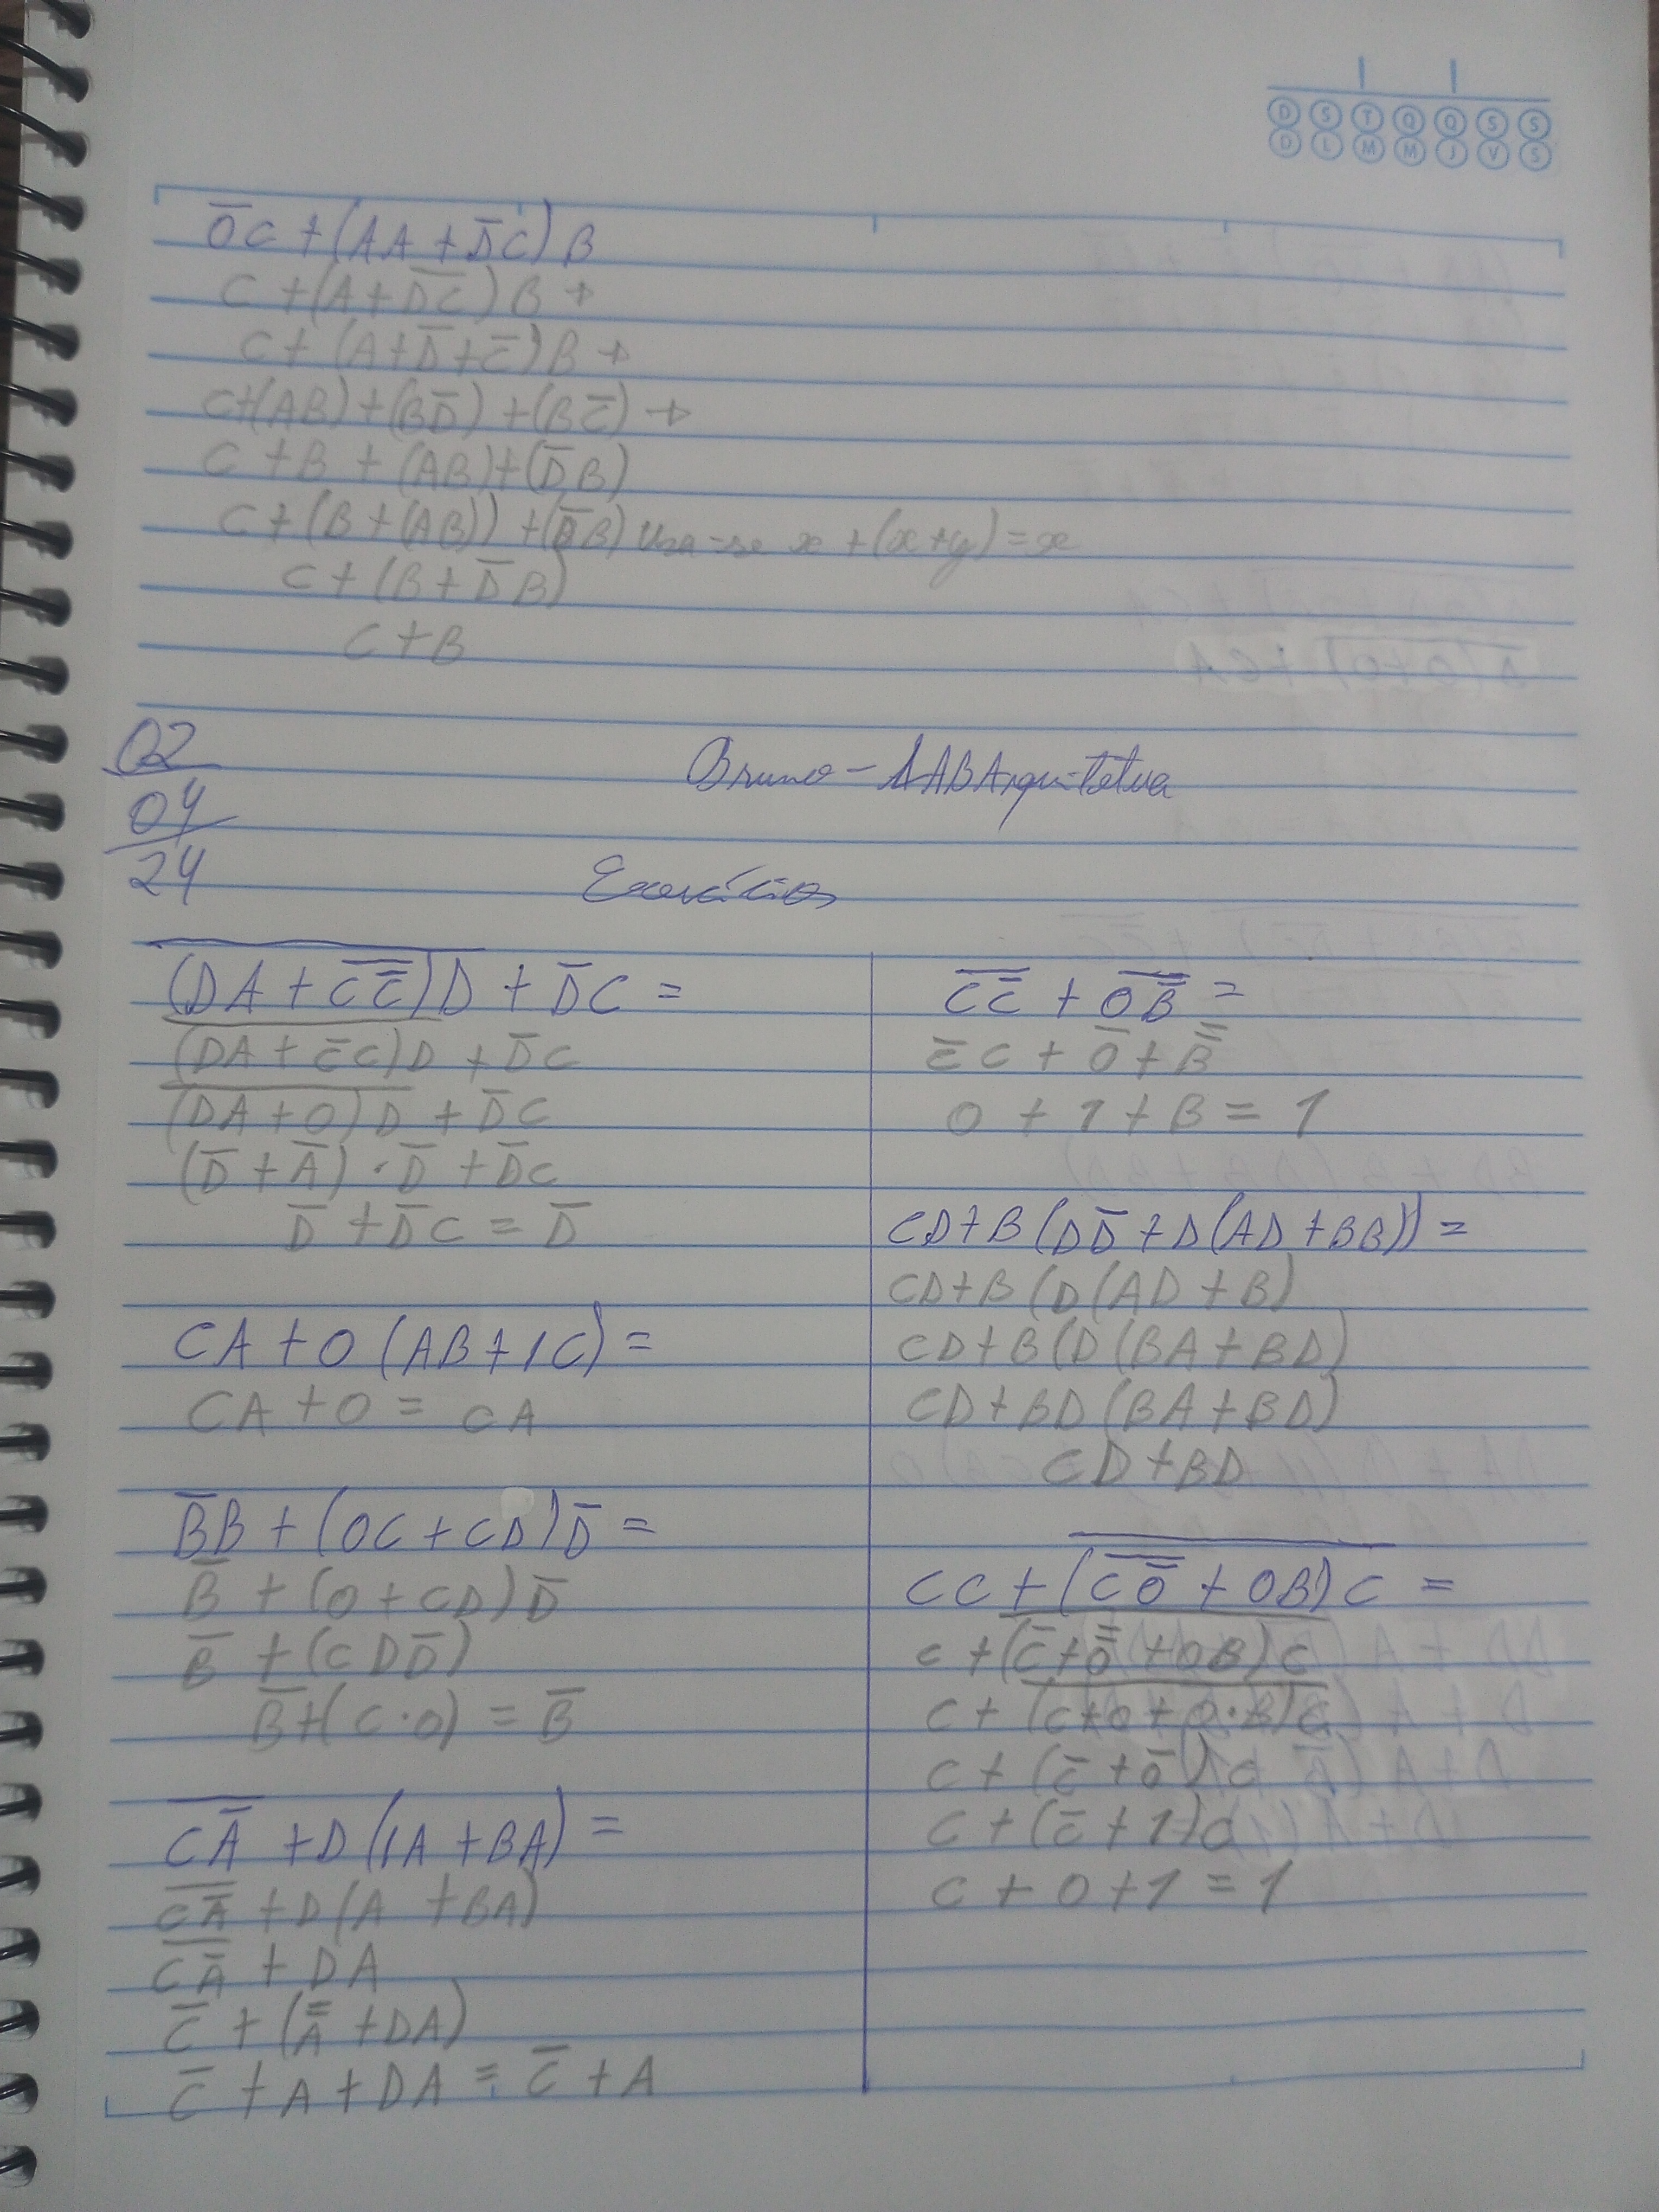 D S T Q Q S S
D L M M J V S
0̅C + (AA + D̅C)B
C + (A + D̅C̅)B →
C + (A + D̅ + C̅)B →
C+(AB) + (BD̅) + (BC̅) →
C + B + (AB) + (D̅B)
C + (B + (AB)) + (D̅B) Usa-se x + (x+y) = x
C + (B + D̅B)
C + B
02
04
24
Bruno - LABArquitetura
Exercícios
(DA + CC̅)D + D̅C =
(DA + C̅C)D + D̅C
(DA + 0)D + D̅C
(D̅ + A̅) · D̅ + D̅C
D̅ + D̅C = D̅
CA + 0 (AB + 1C) =
CA + 0 = CA
B̅B + (0C + CD)D̅ =
B̅ + (0 + CD)D̅
B̅ + (CDD̅)
B̅+(C·0) = B̅
C̅A̅ + D(1A + BA) =
C̅A̅ + D(A + BA)
C̅A̅ + DA
C̅ + (A̿ + DA)
C̅ + A + DA = C̅ + A
C̅C̿ + 0̅B̿ =
C̅C + 0̅ + B̿
0 + 1 + B = 1
CD+B(DD̅+D(AD+BB)) =
CD+B(D(AD+B)
CD+B(D(BA+BD)
CD+BD(BA+BD)
CD+BD
CC + (C̅0̿ + 0B)C =
C + (C̅+0̿ + 0B)C
C + (C+0 + 0·B)C
C + (C̅ + 0̅)C
C + (C̅ + 1)C
C + 0 + 1 = 1